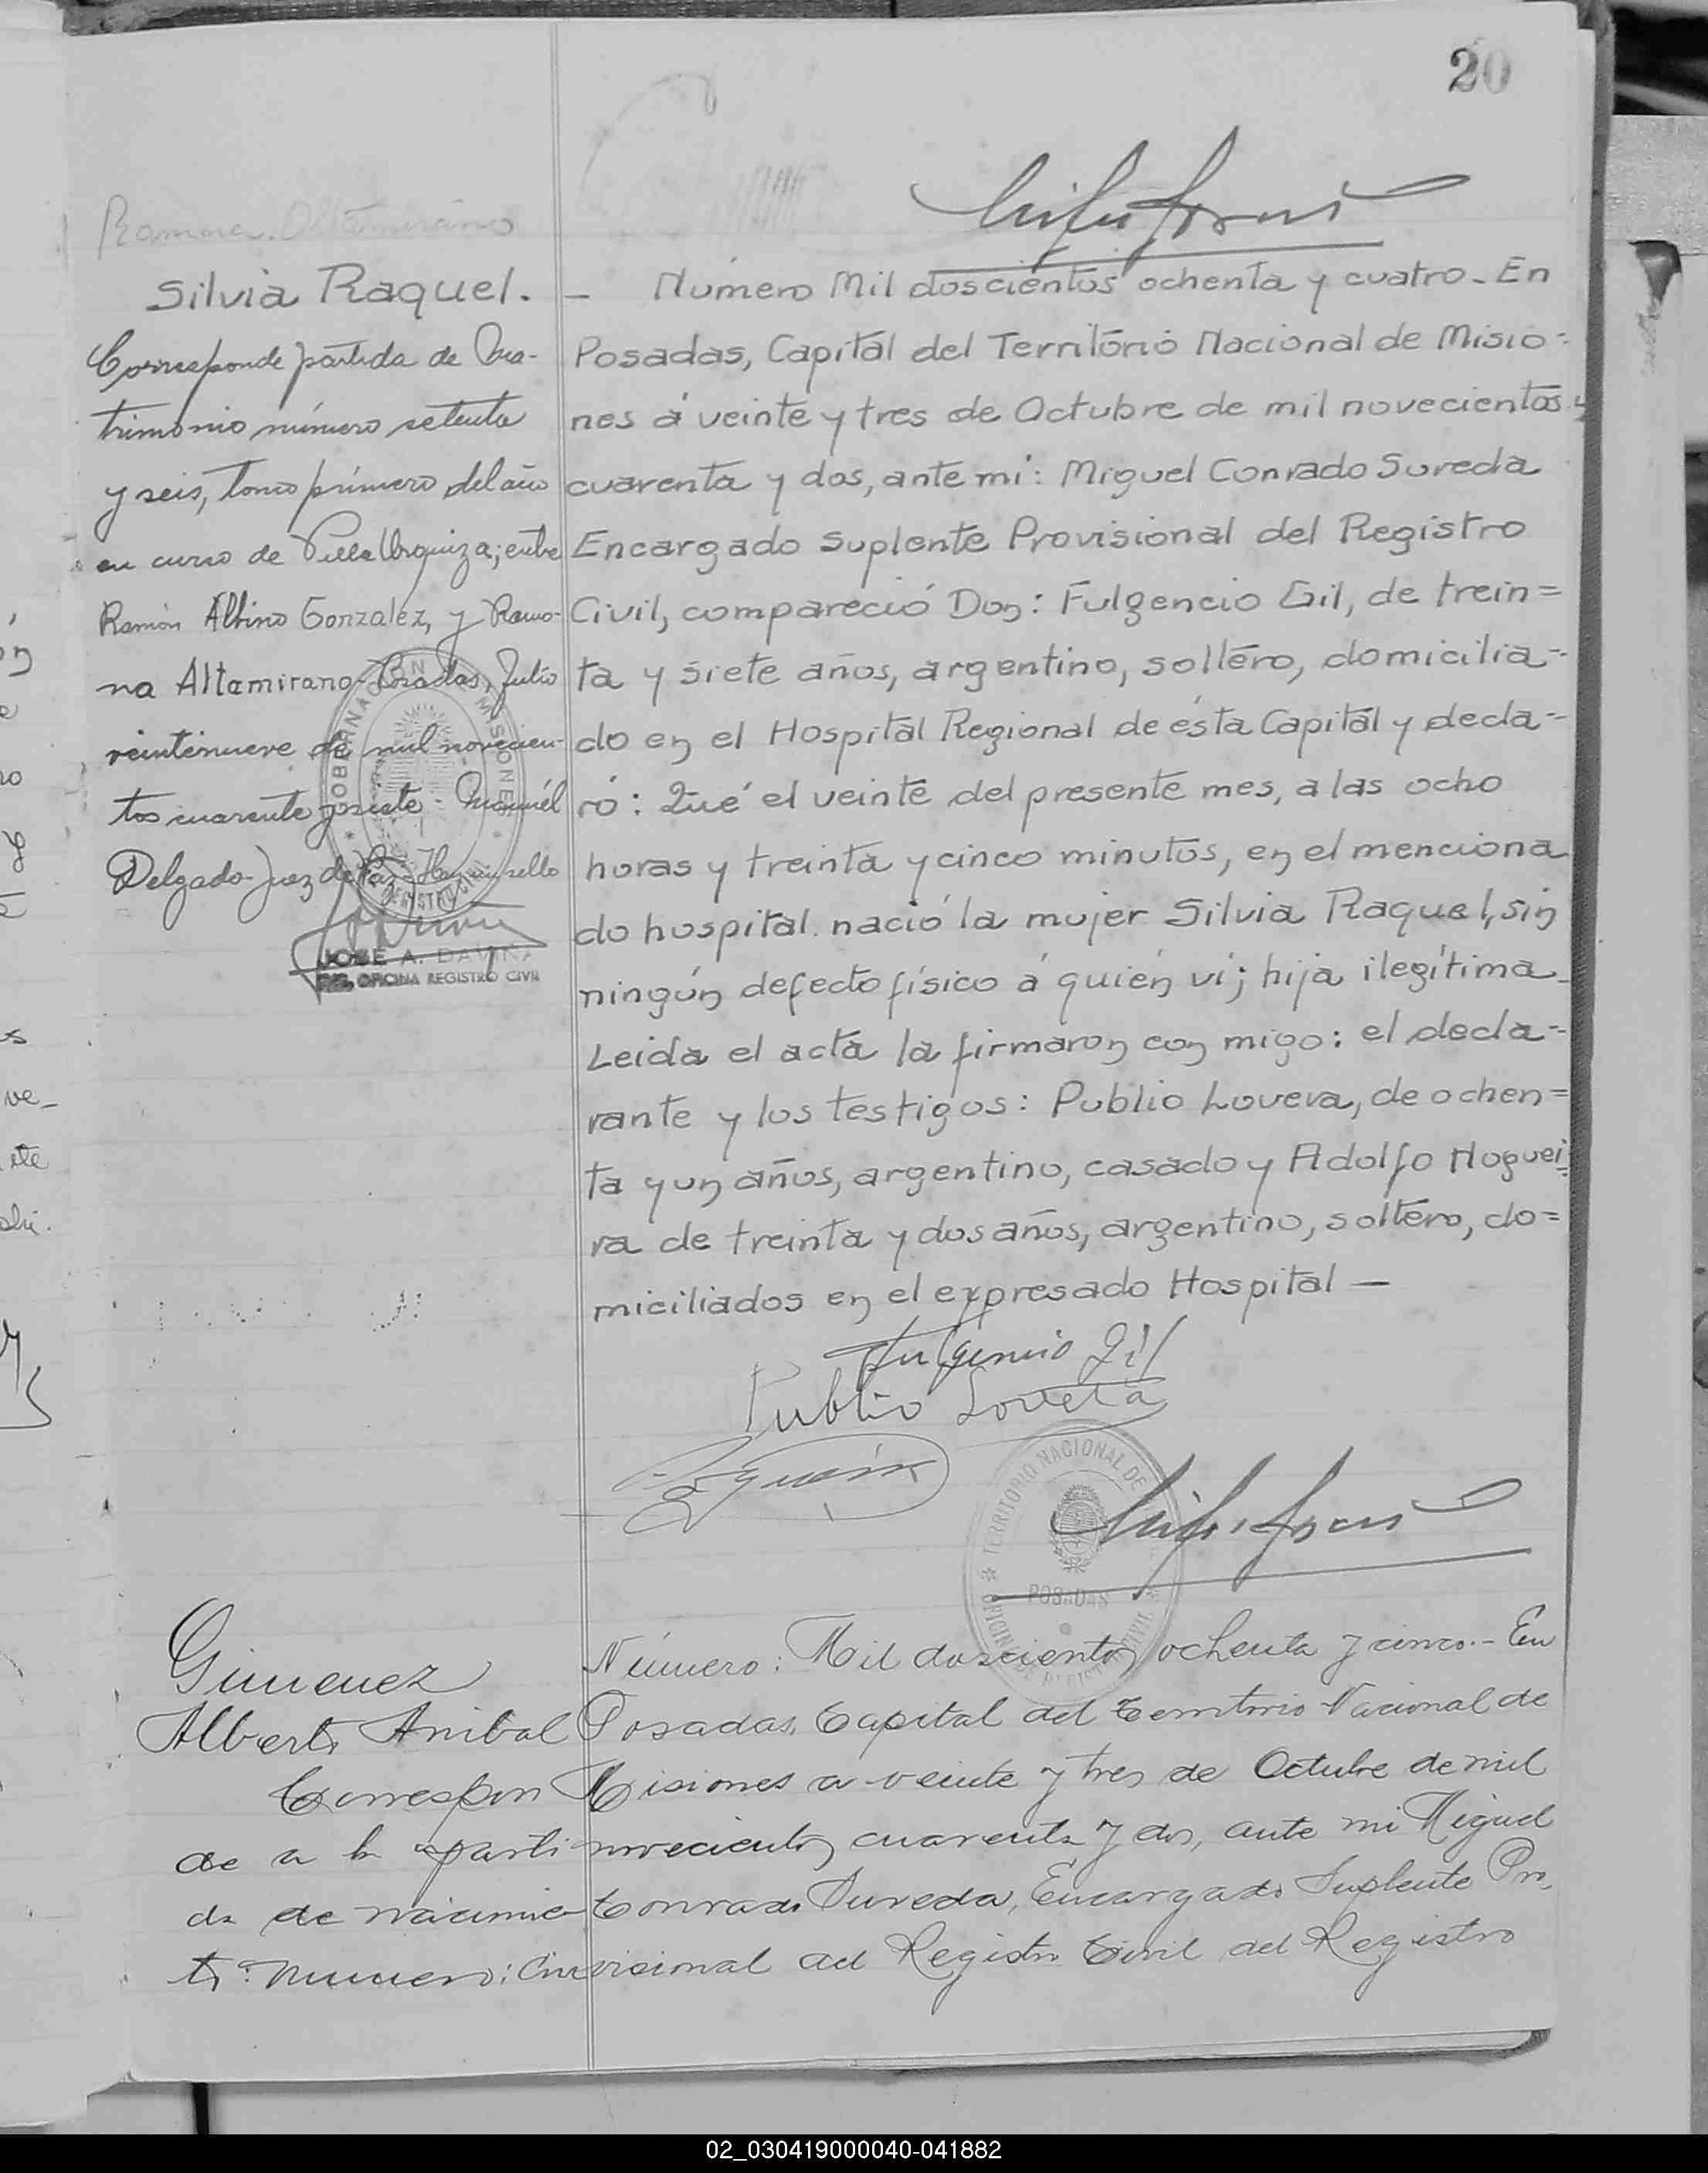 20
Ramona Altamirano
Silvia Raquel.
Corresponde partida de Ma-
trimonio número setenta
y seis, tomo primero del año
en curso de Villa Urquiza; entre
Ramón Albino Gonzalez, y Ramo-
na Altamirano - Posadas, Julio
veintinueve de mil novecien-
tos cuarenta y siete - Manuel
Delgado - Juez de Paz - Hay un sello
GOBERNACION MISIONES
REGISTRO CIVIL
JOSE A. DAVIÑA
OFICINA REGISTRO CIVIL
— Número Mil doscientos ochenta y cuatro - En
Posadas, Capital del Territorio Nacional de Misio=
nes á veinte y tres de Octubre de mil novecientos y
cuarenta y dos, ante mi: Miguel Conrado Sureda
Encargado Suplente Provisional del Registro
Civil, compareció Don: Fulgencio Gil, de trein=
ta y siete años, argentino, soltero, domicilia=
do en el Hospital Regional de ésta Capital y decla=
ró: Qué el veinte del presente mes, a las ocho
horas y treinta y cinco minutos, en el menciona
do hospital. nació la mujer Silvia Raquel, sin
ningún defecto físico á quién ví; hija ilegítima_
Leida el acta la firmaron con migo: el decla=
rante y los testigos: Publio Lovera, de ochen=
ta y un años, argentino, casado y Adolfo Noguei=
ra de treinta y dos años, argentino, soltero, do=
miciliados en el expresado Hospital —
Fulgencio Gil
Publio Lovera
TERRITORIO NACIONAL DE
POSADAS
OFICINA REGISTRO CIVIL
Gimenez
Alberto Anibal
Correspon
de a la parti
da de nacimien
to numero: cin
Número: Mil doscientos ochenta y cinco. - En
Posadas, Capital del Territorio Nacional de
Misiones a veinte y tres de Octubre de mil
novecientos cuarenta y dos, ante mi Miguel
Conrado Sureda, Encargado Suplente Pro,
visional del Registro Civil del Registro
02_030419000040-041882